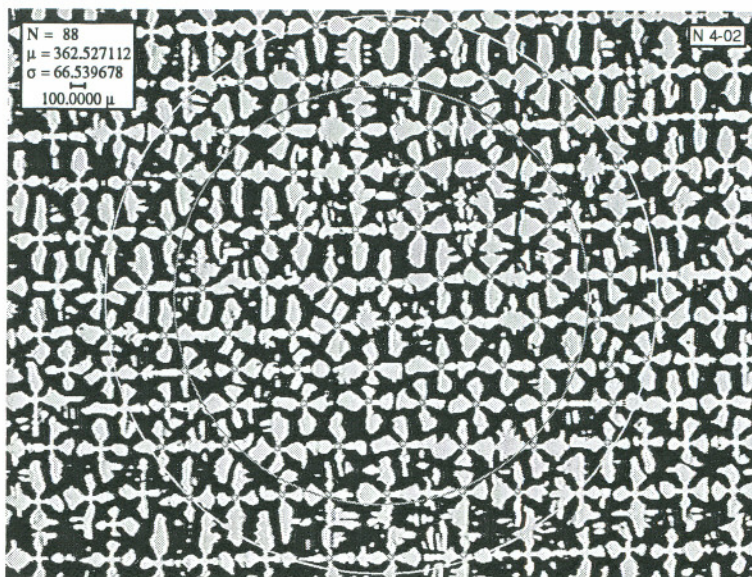 N = 88
μ = 362.527112
σ = 66.539678
100.0000 μ
N 4-02